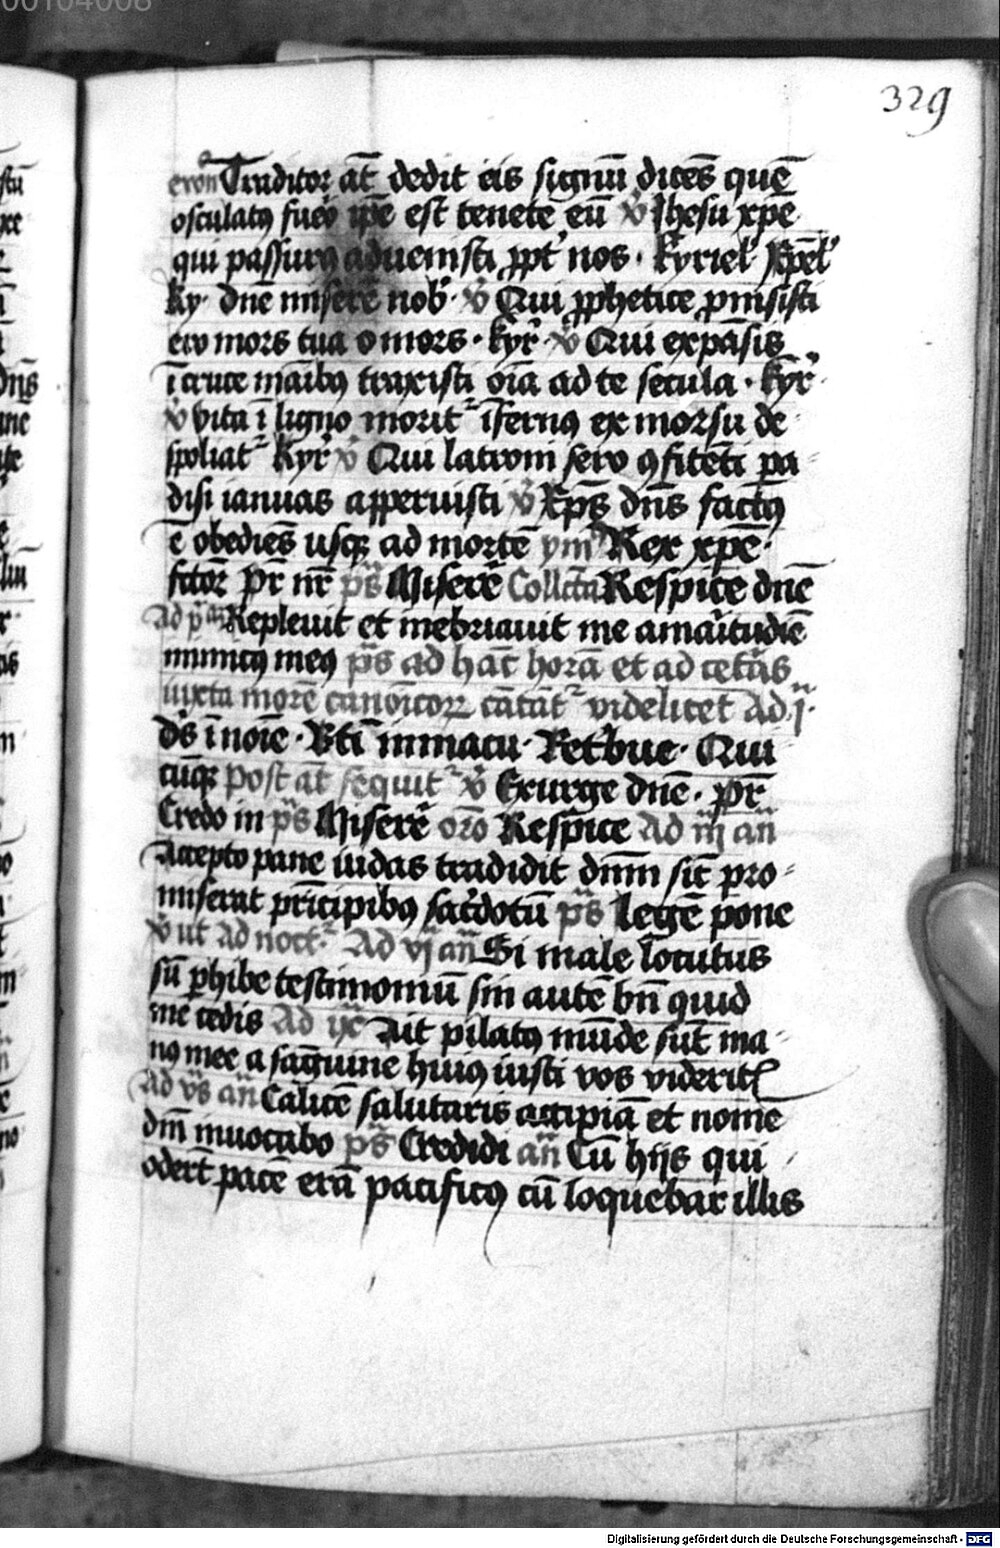 00104008
329
Traditor at̄ dedit eis signū dicēs quē
osculatꝰ fuero ip̄e est tenete eū ꝟ Jhesu xp̄e
qui passurꝰ aduenisti ꝓpt' nos · kyriel' xp̄el'
ky· dn̄e miserē nob' · ꝟ Qui ꝓphetice ꝓmisisti
ero mors tua o mors · kyr̄ · ꝟ Qui expāsis
ī cruce māibꝰ traxisti oīa ad te secula · kyr̄
ꝟ vita ī ligno morit᷑ īfernꝰ ex morsu de
spoliat᷑ kyr̄ ꝟ Qui latroni sero ꝯfitēti pa
disi ianuas apperuisti ꝟ Xp̄s dn̄s factꝰ
ē obediēs usqꝫ ad mortē ym̄ Rex xp̄e·
p̄r nr̄ ps̄ Miserē Collcta Respice dn̄e
Repleuit et inebriauit me amaritudīe
inimicꝰ meꝰ ps̄ ad hāc horā et ad cetās
iuxta morē canoīcoꝝ cātāt᷑ videlicet Ad j·
ds̄ ī noīe · Bt̄i immacu· Retbue· Qui
cūqꝫ post at̄ sequit᷑ ꝟ Exurge dn̄e· pr̄
Credo in ps̄ Miserē or̄o Respice Ad iij an̄
Accepto pane iudas tradidit dn̄m sic̄ pro
miserat pr̄icipibꝰ sac̄dotū ps̄ legē pone
ꝟ ut ad noct᷑· Ad vj an̄ Si male locutus
sū ꝑhibe testimoniū sin autē bn̄ quid
me cedis Ad ix̄ Ait pilatꝰ mūde sūt ma
nꝰ mee a sāguine huiꝰ iusti vos viderit̄
Ad vs̄ an̄ Calicē salutaris accipiā et nomē
dn̄i inuocabo ps̄ Credidi an̄ Cū hijs qui
oderūt pacē erā pacificꝰ cū loquebar illis
Digitalisierung gefördert durch die Deutsche Forschungsgemeinschaft - DFG